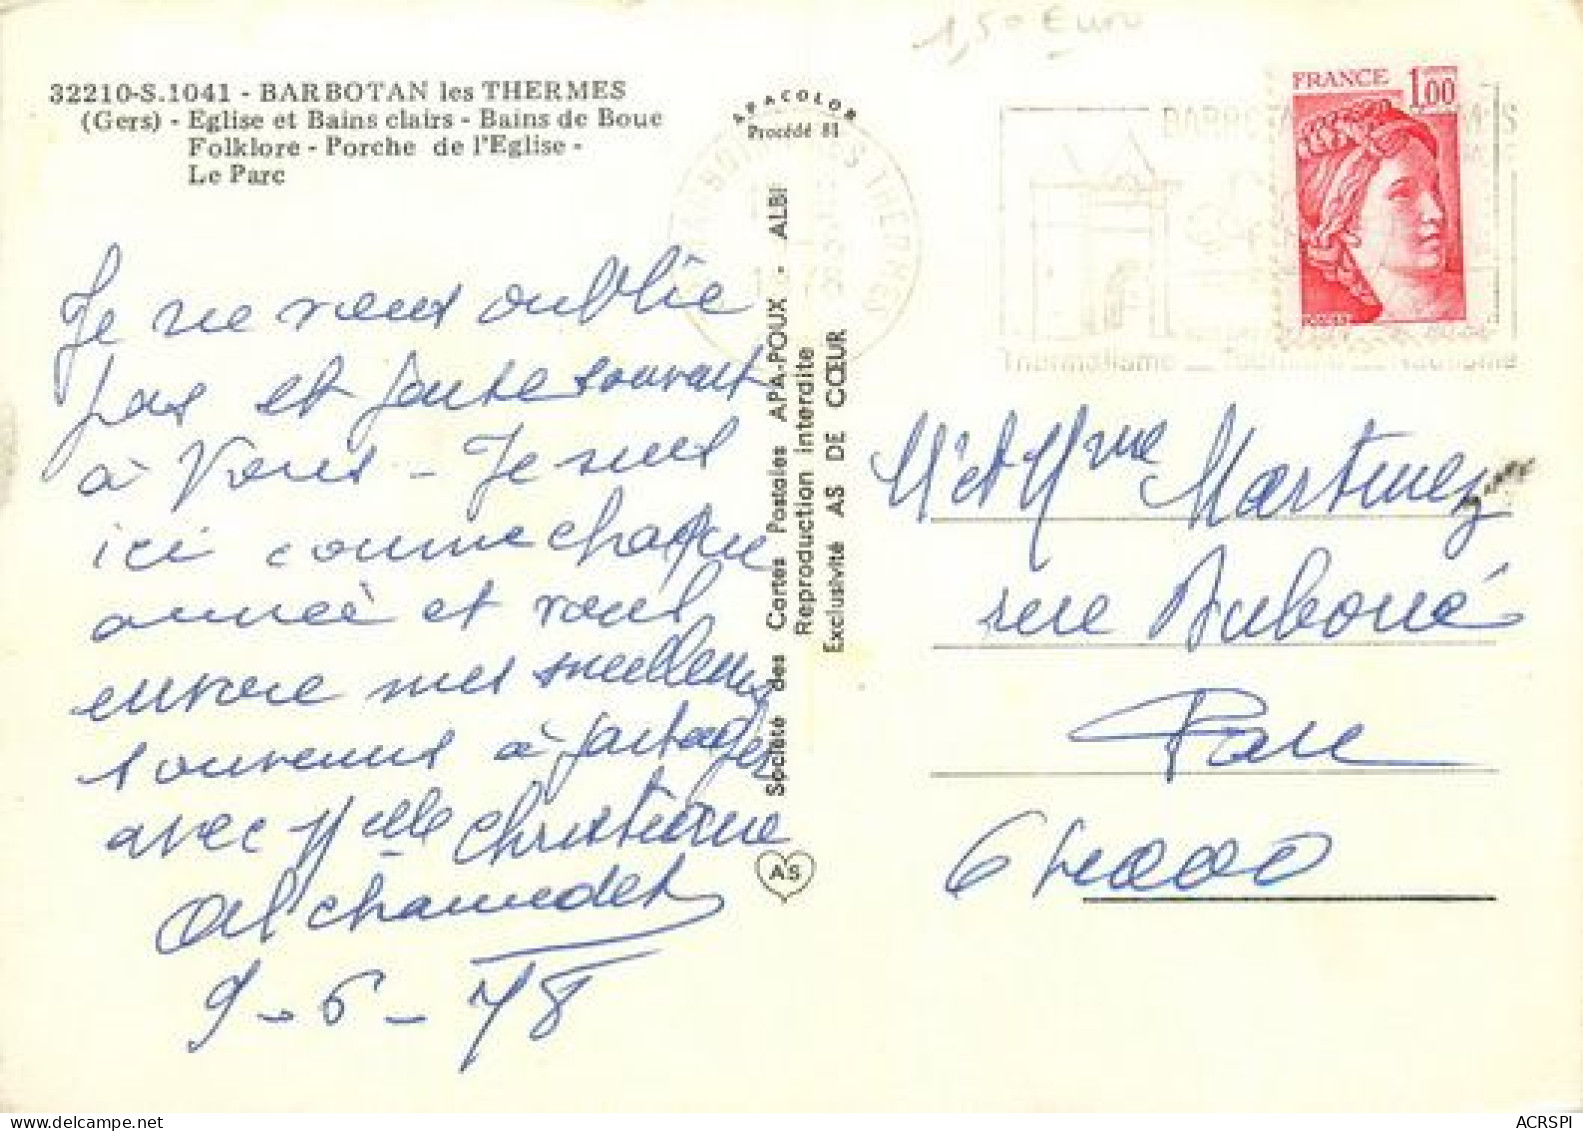 1,50 Euro
32210-S.1041 - BARBOTAN les THERMES
(Gers) - Eglise et Bains clairs - Bains de Boue
Folklore - Porche de l'Eglise -
Le Parc
APACOLOR
Procédé 81
FRANCE 1,00
BARBOTAN LES THERMES
Thermalisme _ _ Nautisme
Je ne vous oublie
pas et pense souvent
à vous - Je suis
ici comme chaque
année et vous
envoie mes meilleurs
souvenirs à partager
avec Melle Christiane
9-6-78
Société des Cartes Postales APA-POUX - ALBI
Reproduction interdite
Exclusivité AS DE CŒUR
AS
M et Mme Martinez
rue
Pau
64000
ACRSPI